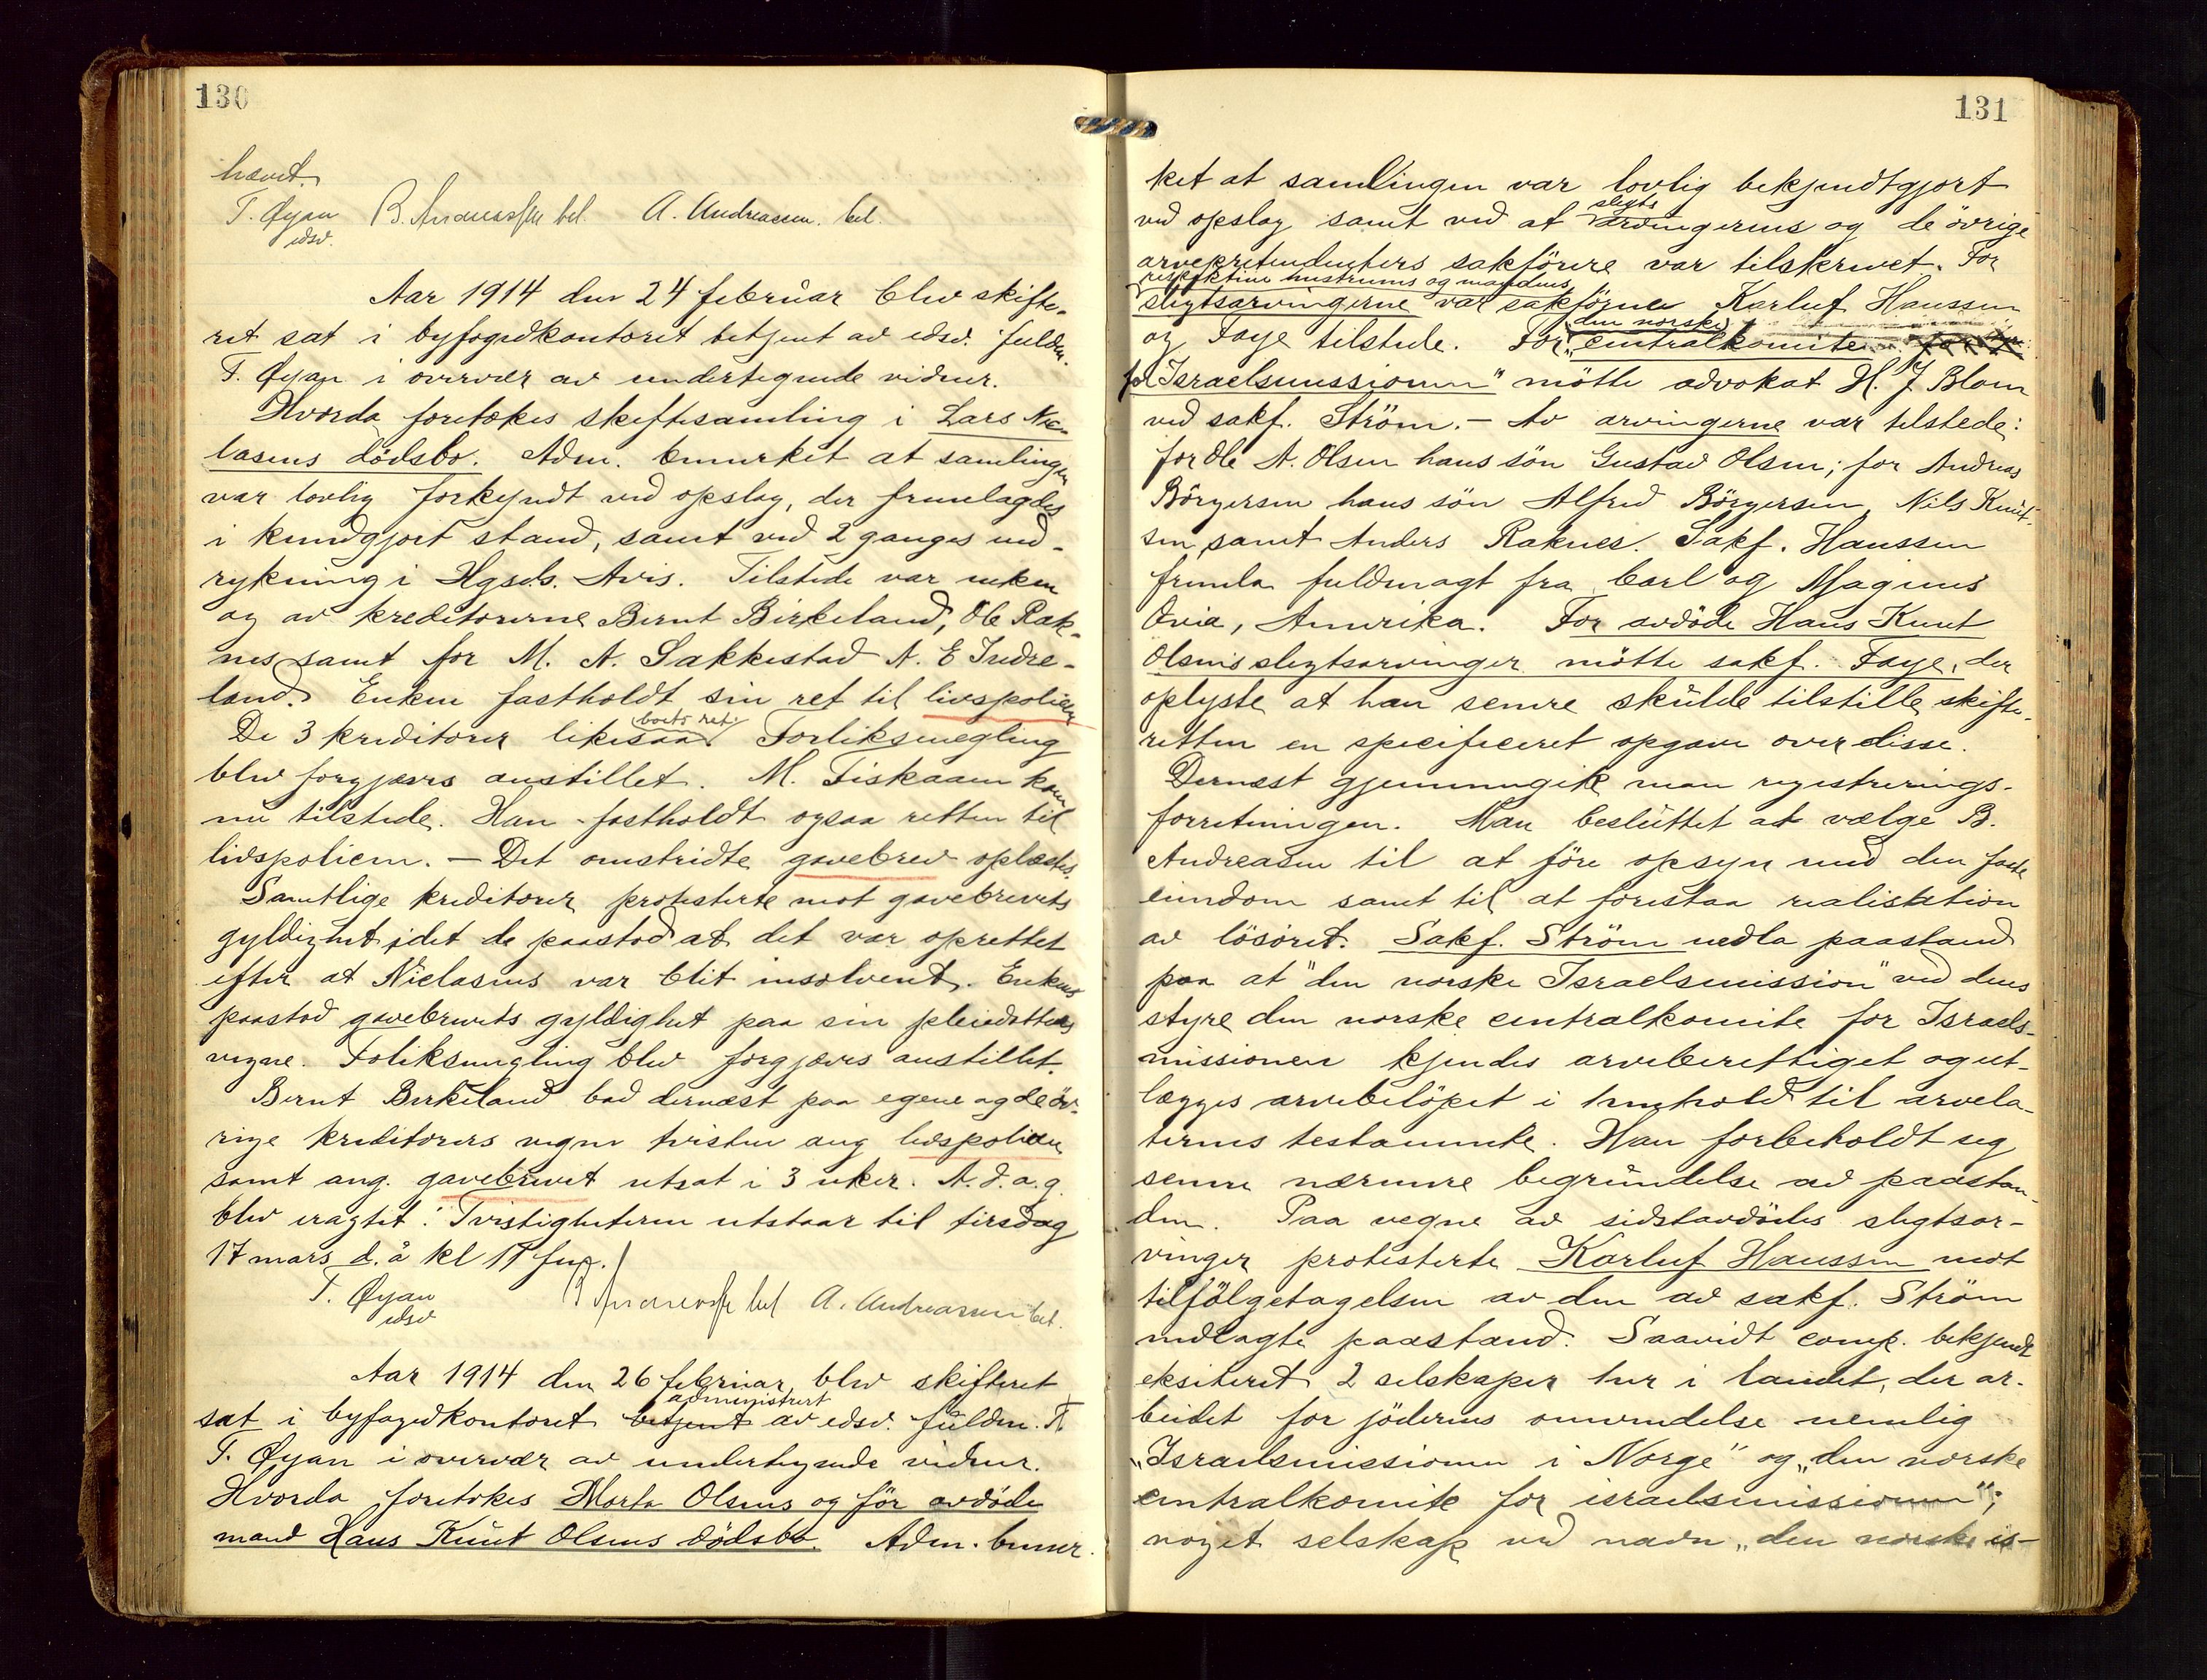 130
hævet.
T. Øyan B. Andreassen bet. A. Andreassen. bet.
edsv.
Aar 1914 den 24 februar blev skifte-
ret sat i byfogedkontoret betjent av edsv. fuldm.
T. Øyan i overvær av undertegnede vidner.
Hvorda foretokes skiftesamling i Lars Nic-
lasens dödsbo. Adm. bemerket at samlingen
var lovlig forkyndt ved opslag, der fremlagdes
i kundgjort stand, samt ved 2 ganges ind-
rykning i Hgsds. Avis. Tilstede var enken
og av kreditorerne Bernt Birkeland, Ole Rak-
nes samt for M. A. Sakkestad A. E Indre-
land. Enken fastholdt sin ret til livspolicen
boets ret.
De 3 kreditorer likesaa Forliksmegling
blev forgjæves anstillet. M. Fiskaaen kom
nu tilstede. Han fastholdt ogsaa retten til
livspolicen. — Det omstridte gavebrev oplæstes.
Samtlige kreditorer protesterte mot gavebrevets
gyldighet idet de paastod at det var oprettet
efter at Niclasens var blit insolvent. Enken
paastod gavebrevets gyldighet paa sin pleiedatters
vegne. Foliksmegling blev forgjæves anstillet.
Bernt Birkeland bad dernæst paa egne og de öv-
rige kreditorers vegne tvisten ang livspolicen
samt ang. gavebrevet utsat i 3 uker. A. d. a. g.
blev eragtet: Tvistigheterne utstaar til tirsdag
17 mars d. å kl 11 fm.
T. Øyan B Andreassen bet A. Andreassen bet.
edsv
Aar 1914 den 26 februar blev skifteret
administrert
sat i byfogedkontoret betjent av edsv. fuldm. T.
T. Øyan i overvær av undertegnede vidner.
Hvorda foretokes Marta Olsens og för avdöde
mand Hans Knut Olsens dödsbo. Adm. bemer-
131
ket at samlingen var lovlig bekjendtgjort
slegts
ved opslag samt ved at arvingernes og de övrige
arvepretendenters sakförere var tilskrevet. For
respektive hustruens og mandens
slegtsarvingerne var sakförerne Karluf Hanssen
den norske
og Faye tilstede. For „centralkomite
for Israelsmissionen" mötte advokat H. J Blom
ved sakf. Ström. — Av arvingerne var tilstede:
for Ole A. Olsen hans sön Gustav Olsen; for Andreas
Börgersen hans sön Alfred Börgersen, Nils Knut-
sen, samt Anders Raknes. Sakf. Hanssen
fremla fuldmagt fra Carl og Magnus
Ovia, Amerika. For avdöde Hans Knut
Olsens slegtsarvinger mötte sakf. Faye, der
oplyste at han senere skulde tilstille skifte-
retten en specificeret opgave over disse.
Dernæst gjennemgik man registrerings-
forretningen. Man besluttet at vælge B.
Andreasen til at före opsyn med den faste
eiendom samt til at forestaa realisation
av lösöret. Sakf. Ström nedla paastand
paa at "den norske Israelsmission" ved dens
styre den norske centralkomite for Israels-
missionen kjendes arveberettiget og ut-
lægges arvebelöpet i henhold til arvela-
terens testamente. Han forbeholdt seg
senere nærmere begrundelse av paastan-
den. Paa vegne av sidstavdödes slegtsar-
vinger protesterte Karluf Hanssen mot
tilfölgetagelsen av den av sakf. Ström
nedlagte paastand. Saavidt comp. bekjendt
eksiteret 2 selskaper her i landet, der ar-
beidet for jödernes omvendelse nemlig
„Israelsmissionen i Norge" og „den norske
centralkomite for israelsmissionen";
noget selskap ved navn „den norske is-